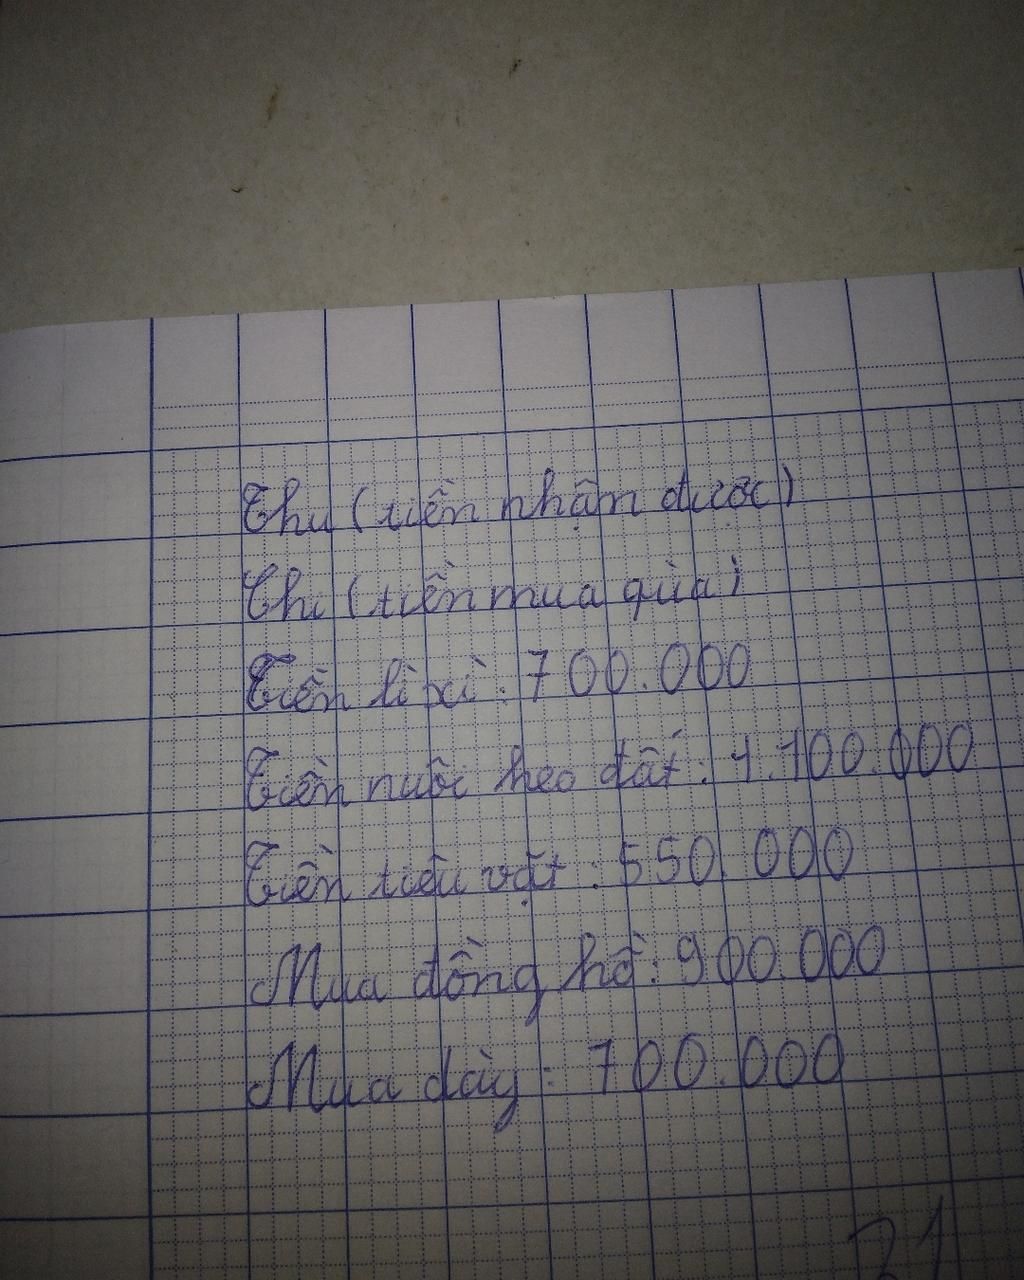 Thu (tiền nhận được)
Chi (tiền mua quà)
Tiền lì xì: 700.000
Tiền nuôi heo đất: 1.100.000
Tiền tiêu vặt: 550.000
Mua đồng hồ: 900.000
Mua dày: 700.000